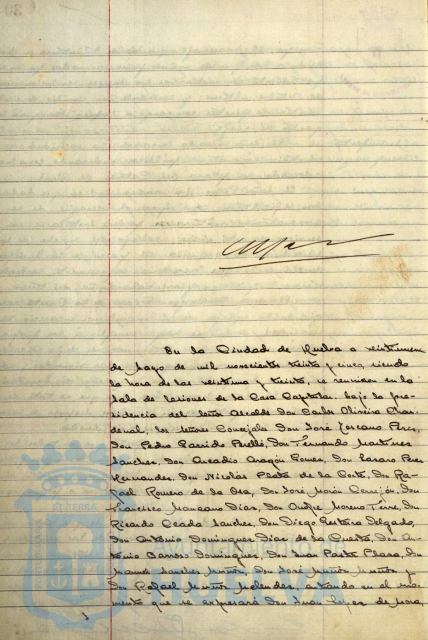 En la Ciudad de Huelva a veintinueve
de Mayo de mil novecientos treinta y cinco, siendo
la hora de las veintiuna y treinta, se reunieron en la
Sala de Sesiones de la Casa Capitular, bajo la pre-
sidencia del Señor Alcalde Don Carlos Oliveira
los señores Concejales Don José Toscano Pérez,
Don Pedro Garrido Perelló, Don Fernando Martínez
Sanchez, Don Arcadio Aragón Gomez, Don Lazaro Perez
Hernandez, Don Nicolas Plata de la Corte, Don Ra-
fael Romero de la Osa, Don José Morón Cerrejón, Don
Francisco Manzano Diaz, Don Andre Moreno Don
Ricardo Ceada Sanchez, Don Diego Delgado,
Don Antonio Dominguez Diaz de la Don An-
tonio Dominguez, Don Juan Prats Plaza, Don
Manuel Sanchez Don José Muñiz Muñiz y
Don Rafael Muñiz Melendez, entrando en el mo-
mento que se expresará Don Juan Lopez de Mora,
HUELVA